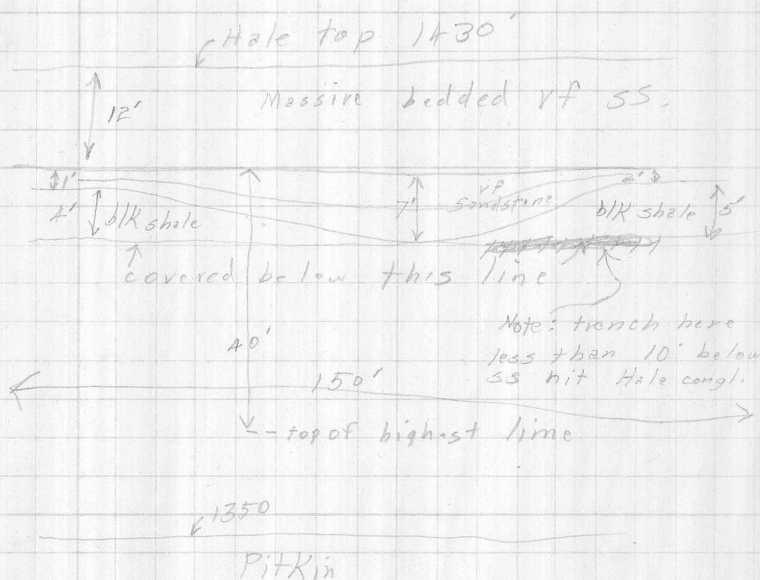 Hale top 1430'
Massive bedded vf ss.
12'
1'
4'
blk shale
7'
vf
Sandstone
2'
blk shale
5'
covered below this line
40'
Note: trench here
less than 10' below
ss hit Hale congl.
150'
-- top of highest lime
1350
Pitkin